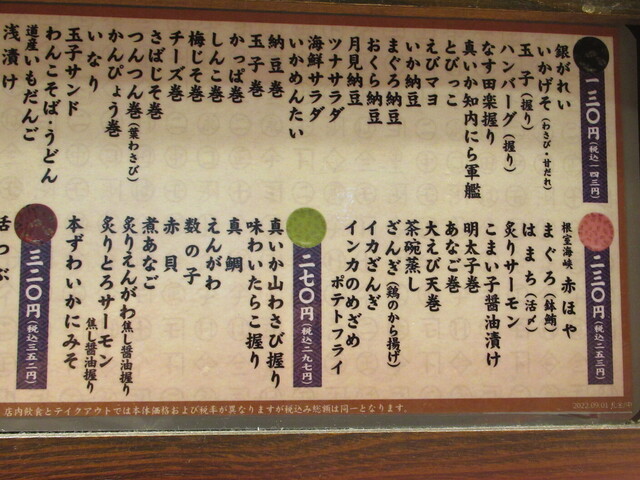 一三〇円（税込一四三円）
銀がれい
いかげそ（わさび・甘だれ）
玉子（握り）
ハンバーグ（握り）
なす田楽握り
真いか知内にら軍艦
とびっこ
えびマヨ
いか納豆
まぐろ納豆
おくら納豆
月見納豆
ツナサラダ
海鮮サラダ
いかめんたい
納豆巻
玉子巻
かっぱ巻
しんこ巻
梅じそ巻
チーズ巻
さばじそ巻
つんつん巻（葉わさび）
かんぴょう巻
いなり
玉子サンド
わんこそば・うどん
道産いもだんご
浅漬け
二三〇円（税込二五三円）
根室海峡 赤ほや
まぐろ（鉢鮪）
はまち（活〆）
炙りサーモン
こまい子醤油漬け
明太子巻
あなご巻
大えび天巻
茶碗蒸し
ざんぎ（鶏のから揚げ）
イカざんぎ
インカのめざめ
ポテトフライ
二七〇円（税込二九七円）
真いか山わさび握り
味わいたらこ握り
真鯛
えんがわ
数の子
赤貝
煮あなご
炙りえんがわ焦し醤油握り
炙りとろサーモン焦し醤油握り
本ずわいかにみそ
三二〇円（税込三五二円）
活つぶ
店内飲食とテイクアウトでは本体価格および税率が異なりますが税込み総額は同一となります。
2022.09.01